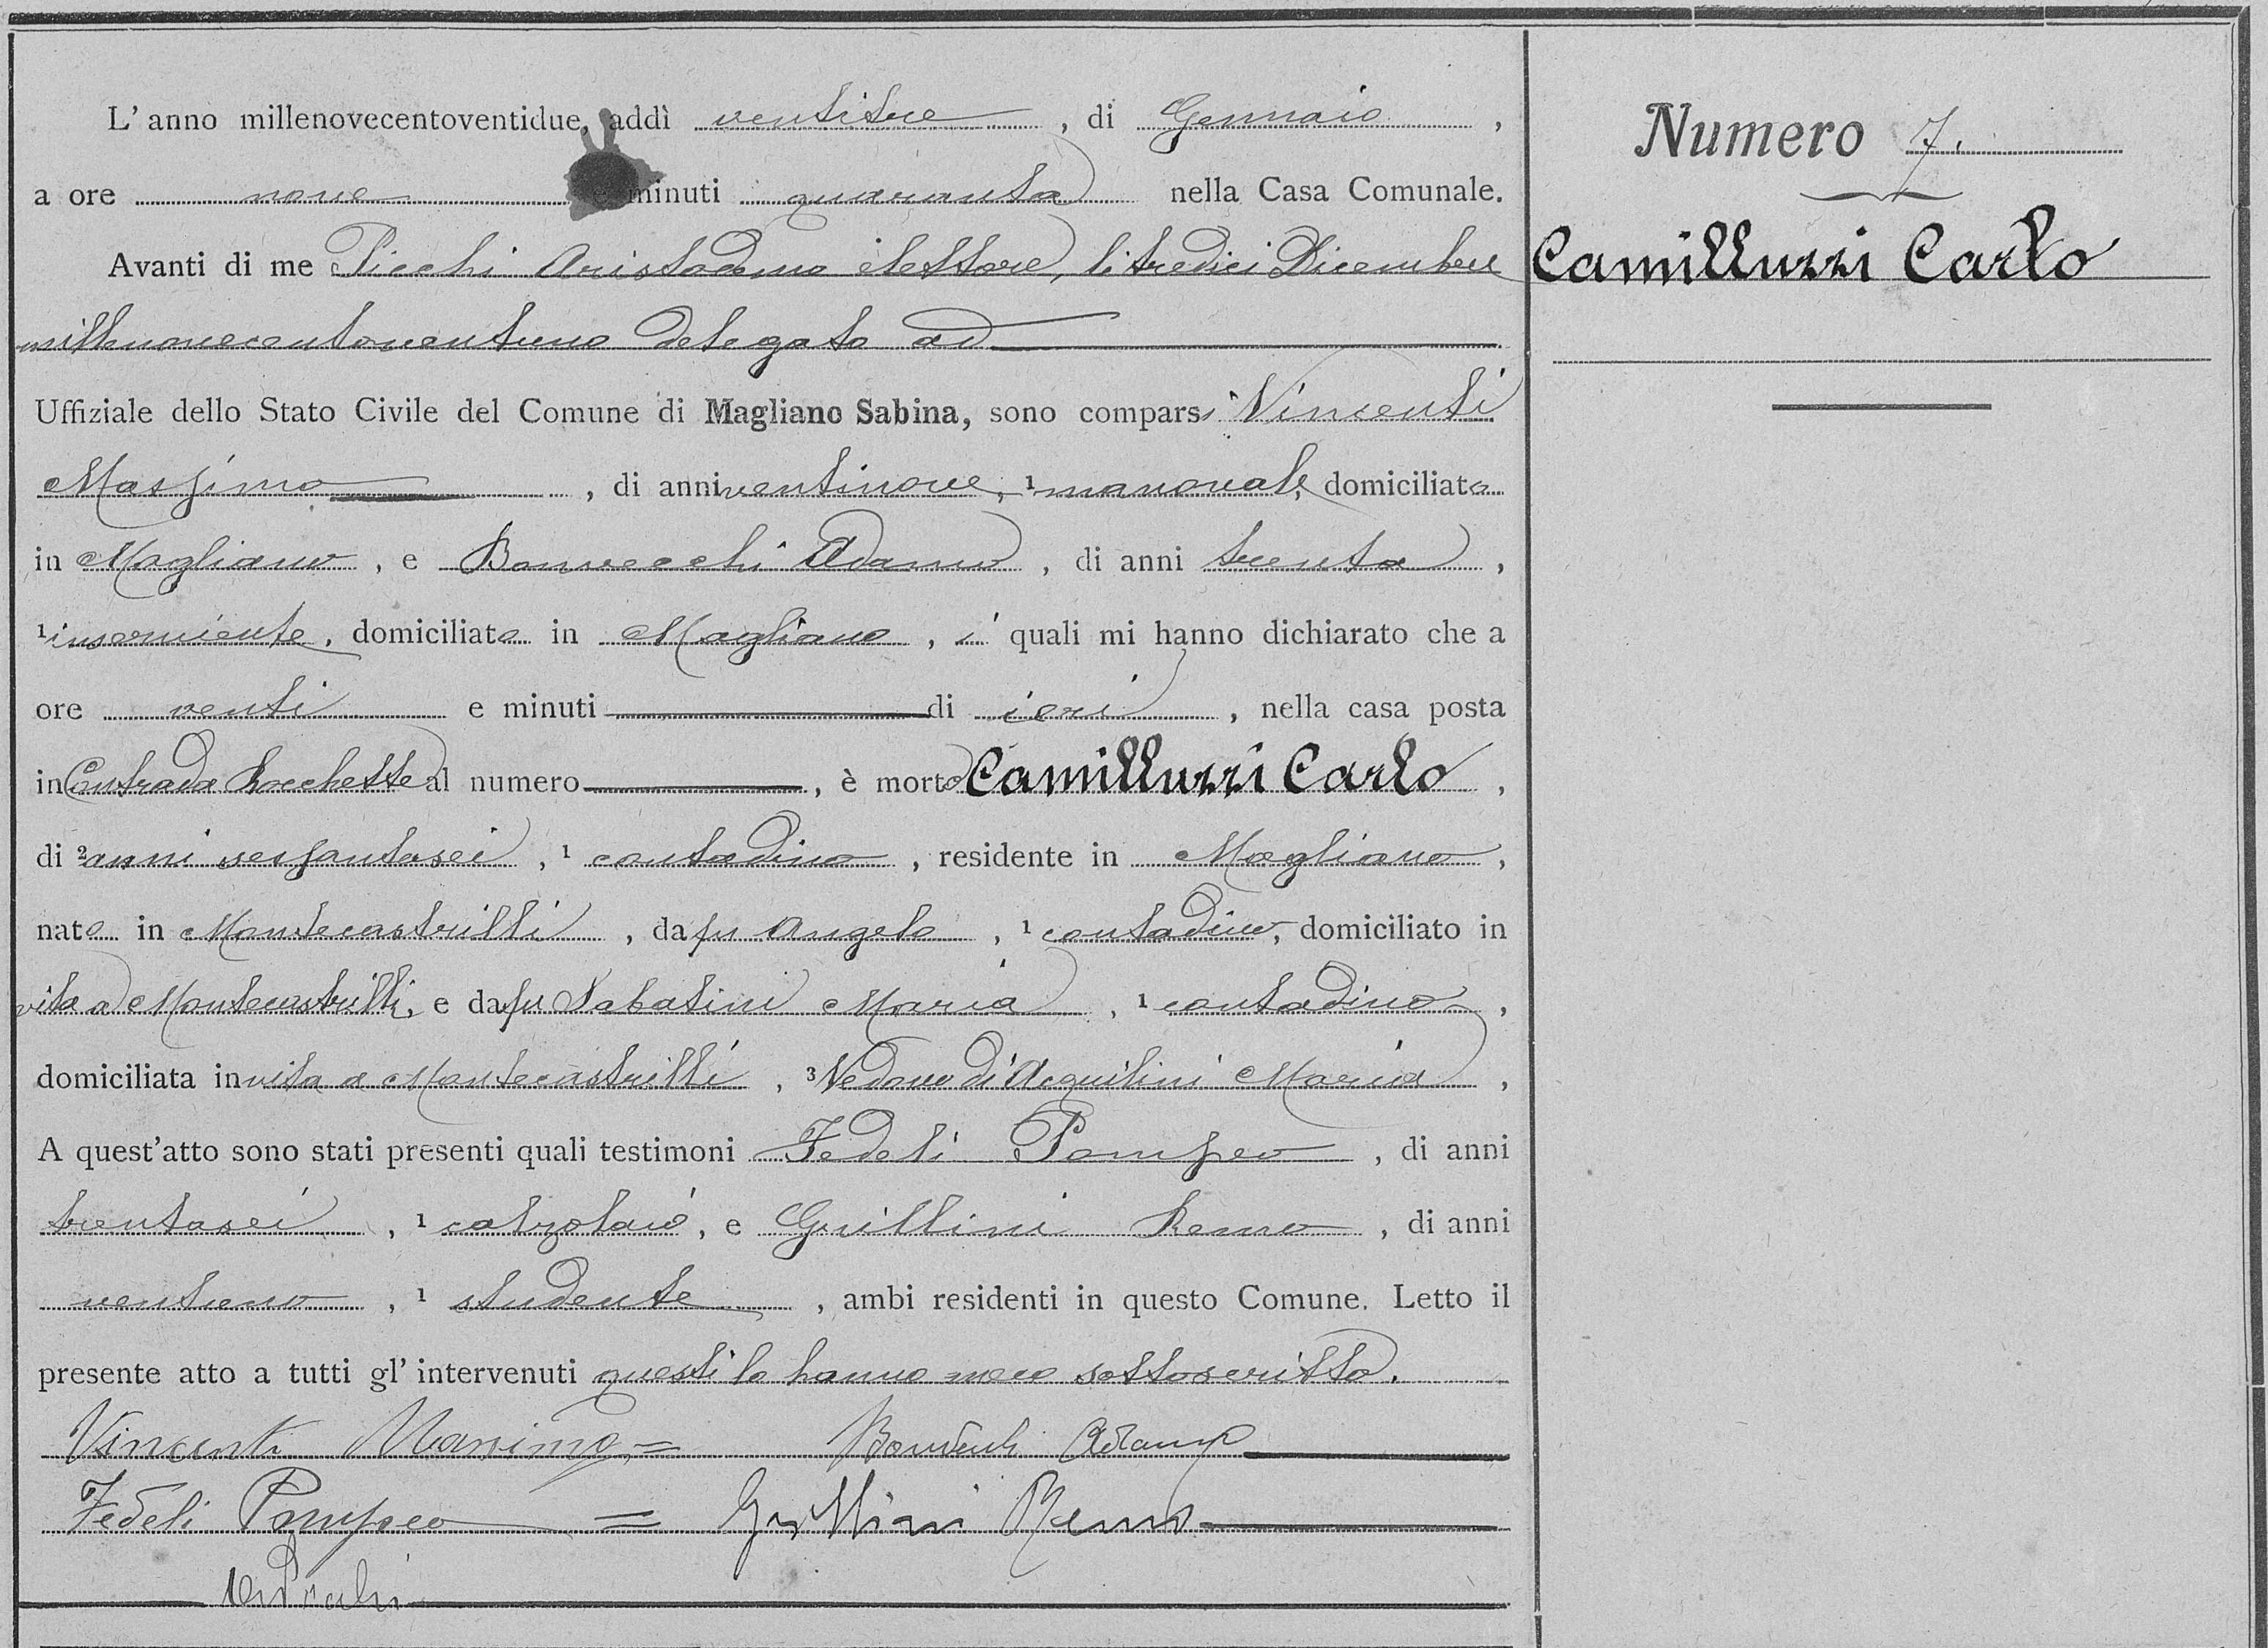 L'anno millenovecentoventidue, addì ventitre, di Gennaio,
a ore nove e minuti quaranta nella Casa Comunale.
Avanti di me Picchi Aristodemo elettore, li tredici Dicembre
millenovecentoventuno delegato ad
Uffiziale dello Stato Civile del Comune di Magliano Sabina, sono comparsi Vincenti
Massimo, di anni ventinove, ¹ manovale, domiciliato
in Magliano, e Bonvecchi Adamo, di anni trenta,
¹ inserviente, domiciliato in Magliano, i quali mi hanno dichiarato che a
ore venti e minuti di ieri, nella casa posta
in Contrada Rocchette al numero, è morto Camilluzzi Carlo,
di ² anni sessantasei, ¹ contadino, residente in Magliano,
nato in Montecastrilli, da fu Angelo, ¹ contadino, domiciliato in
vita a Montecastrilli, e da fu Sabatini Maria, ¹ contadina,
domiciliata in vita a Montecastrilli, ³ Vedovo di Acquilini Maria,
A quest'atto sono stati presenti quali testimoni Fedeli Pompeo, di anni
trentasei, ¹ calzolaio, e Grillini Remo, di anni
ventuno, ¹ studente, ambi residenti in questo Comune. Letto il
presente atto a tutti gl'intervenuti questi lo hanno meco sottoscritto.
Vincenti Massimo = Bonvecchi Adamo
Fedeli Pompeo = Grillini Remo
Picchi
Numero 7.
Camilluzzi Carlo